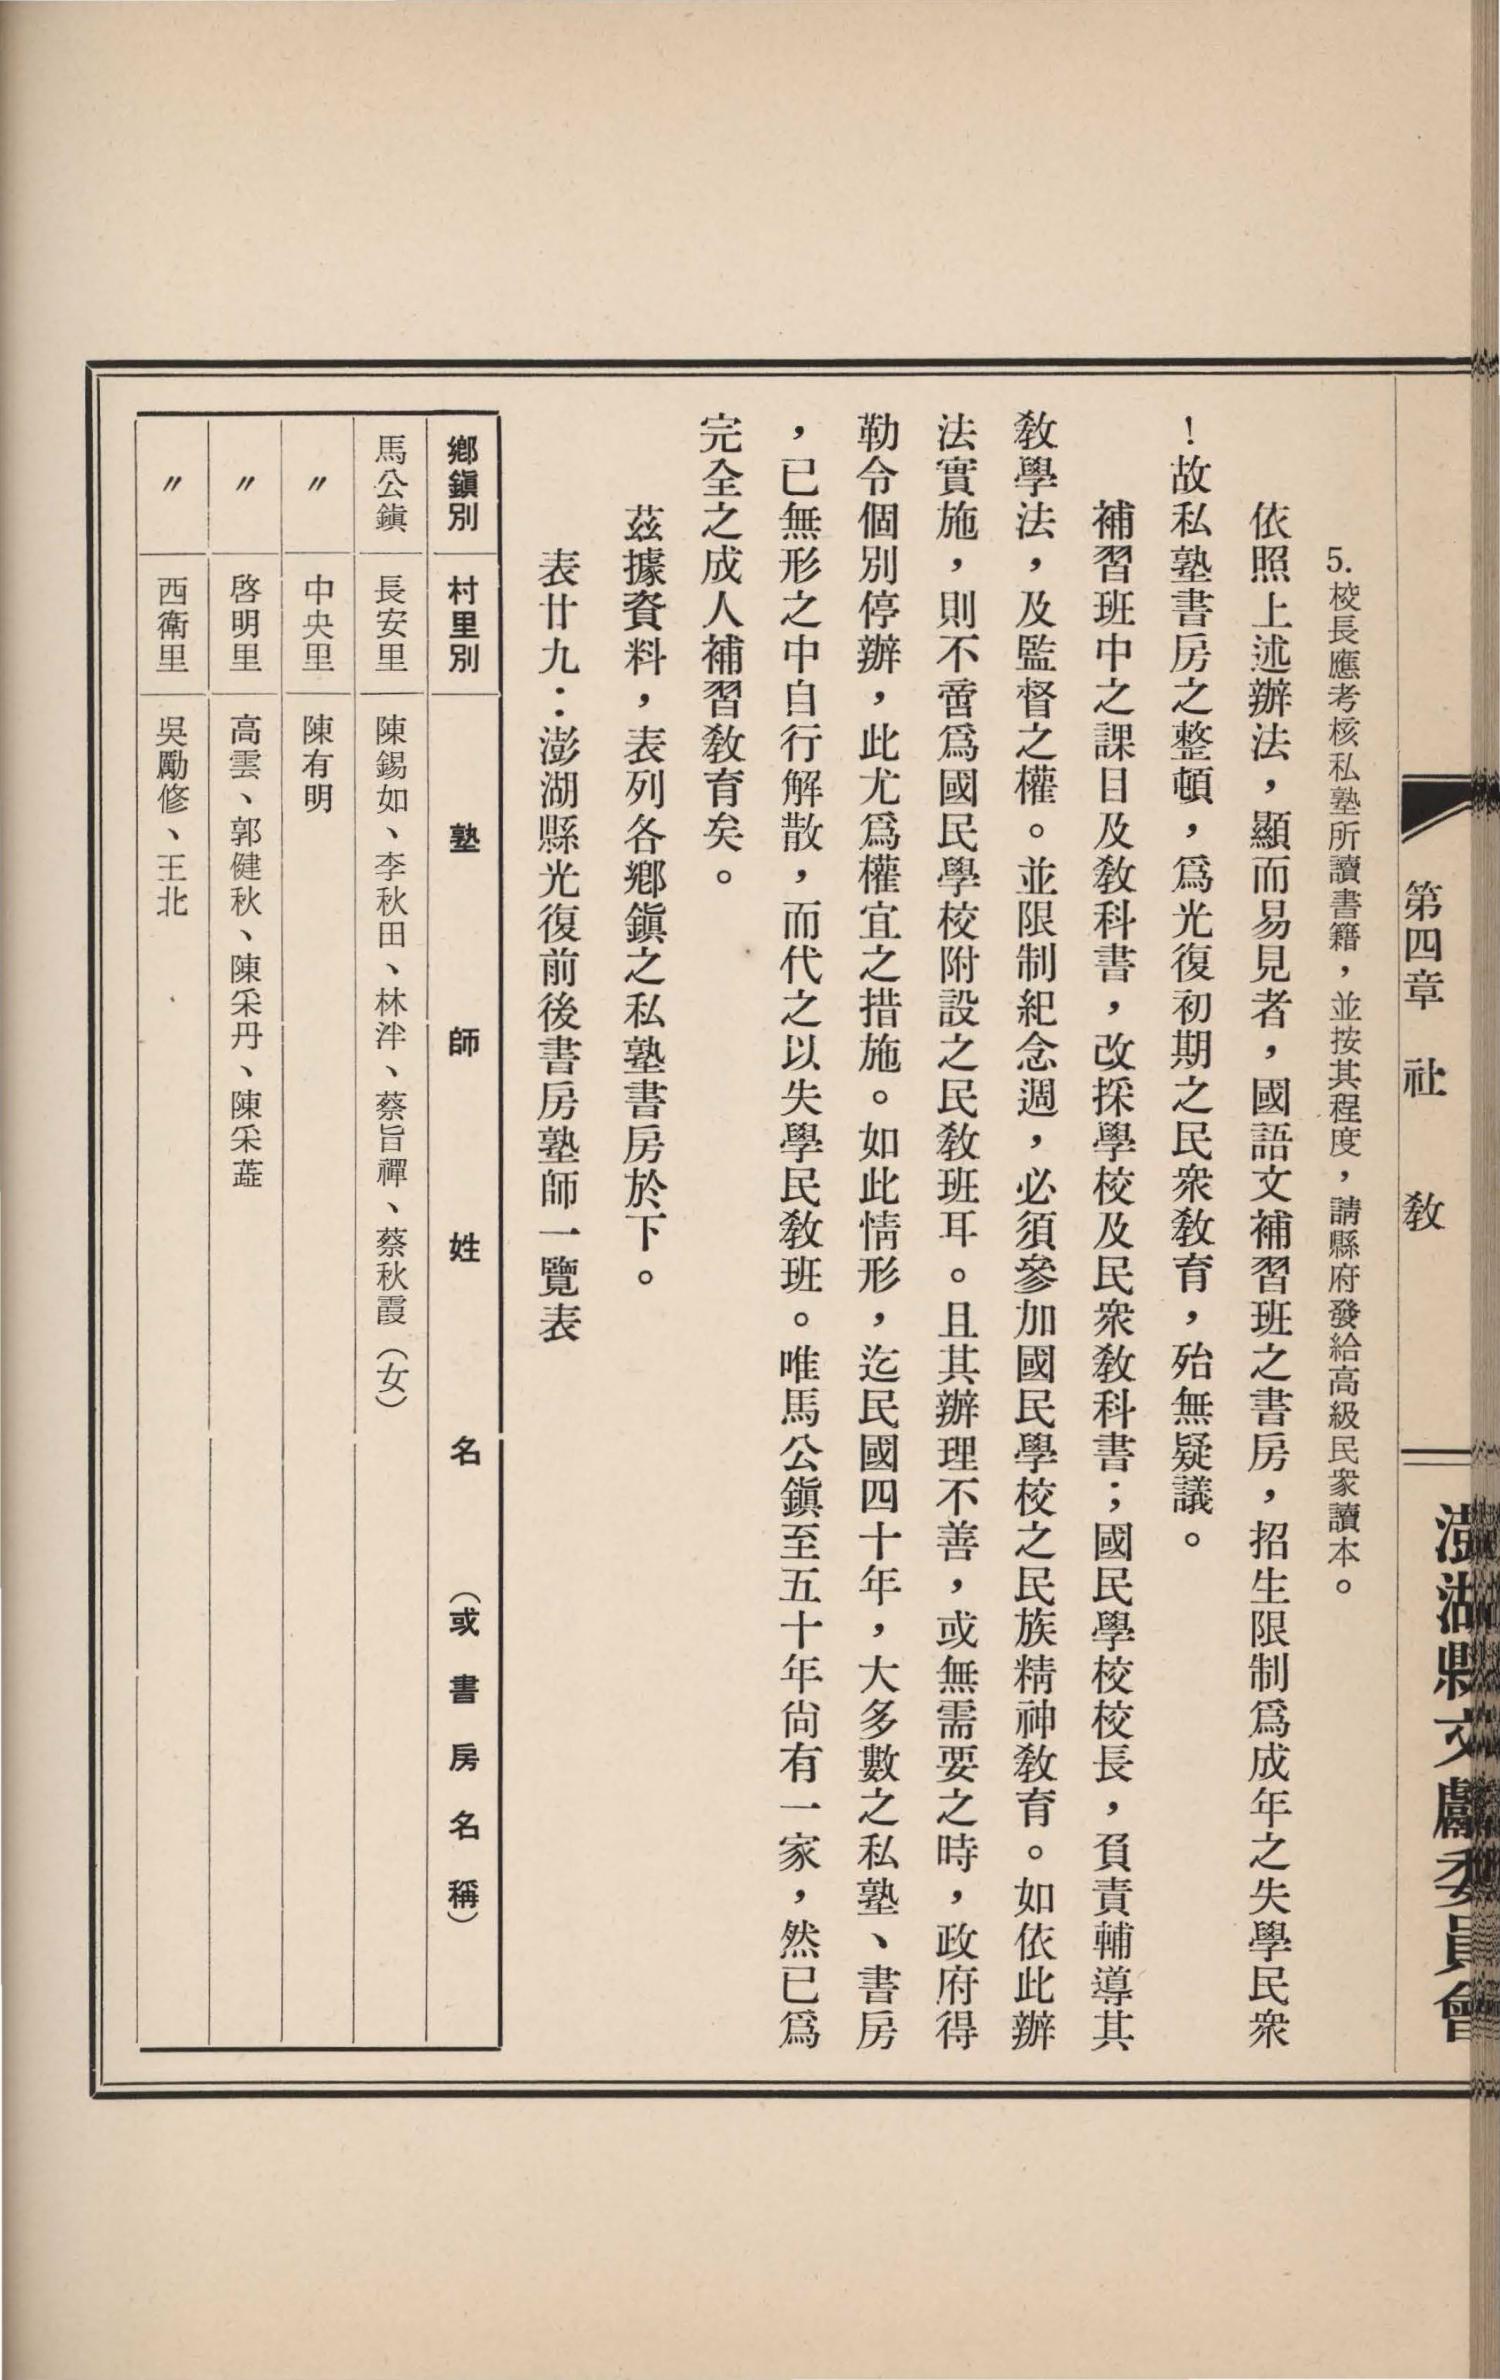 第四章 社教
澎湖縣文獻委員會
5.校長應考核私塾所讀書籍，並按其程度，請縣府發給高級民衆讀本。
依照上述辦法，顯而易見者，國語文補習班之書房，招生限制爲成年之失學民衆
！故私塾書房之整頓，爲光復初期之民衆敎育，殆無疑議。
補習班中之課目及敎科書，改採學校及民衆敎科書；國民學校校長，負責輔導其
敎學法，及監督之權。並限制紀念週，必須參加國民學校之民族精神敎育。如依此辦
法實施，則不啻爲國民學校附設之民敎班耳。且其辦理不善，或無需要之時，政府得
勒令個別停辦，此尤爲權宜之措施。如此情形，迄民國四十年，大多數之私塾、書房
，已無形之中自行解散，而代之以失學民敎班。唯馬公鎭至五十年尙有一家，然已爲
完全之成人補習敎育矣。
茲據資料，表列各鄕鎭之私塾書房於下。
表廿九：澎湖縣光復前後書房塾師一覽表
鄕鎭別 村里別 塾師姓名（或書房名稱）
馬公鎭 長安里 陳錫如、李秋田、林泮、蔡旨禪、蔡秋霞（女）
〃 中央里 陳有明
〃 啓明里 高雲、郭健秋、陳采丹、陳采蘁
〃 西衛里 吳勵修、王北